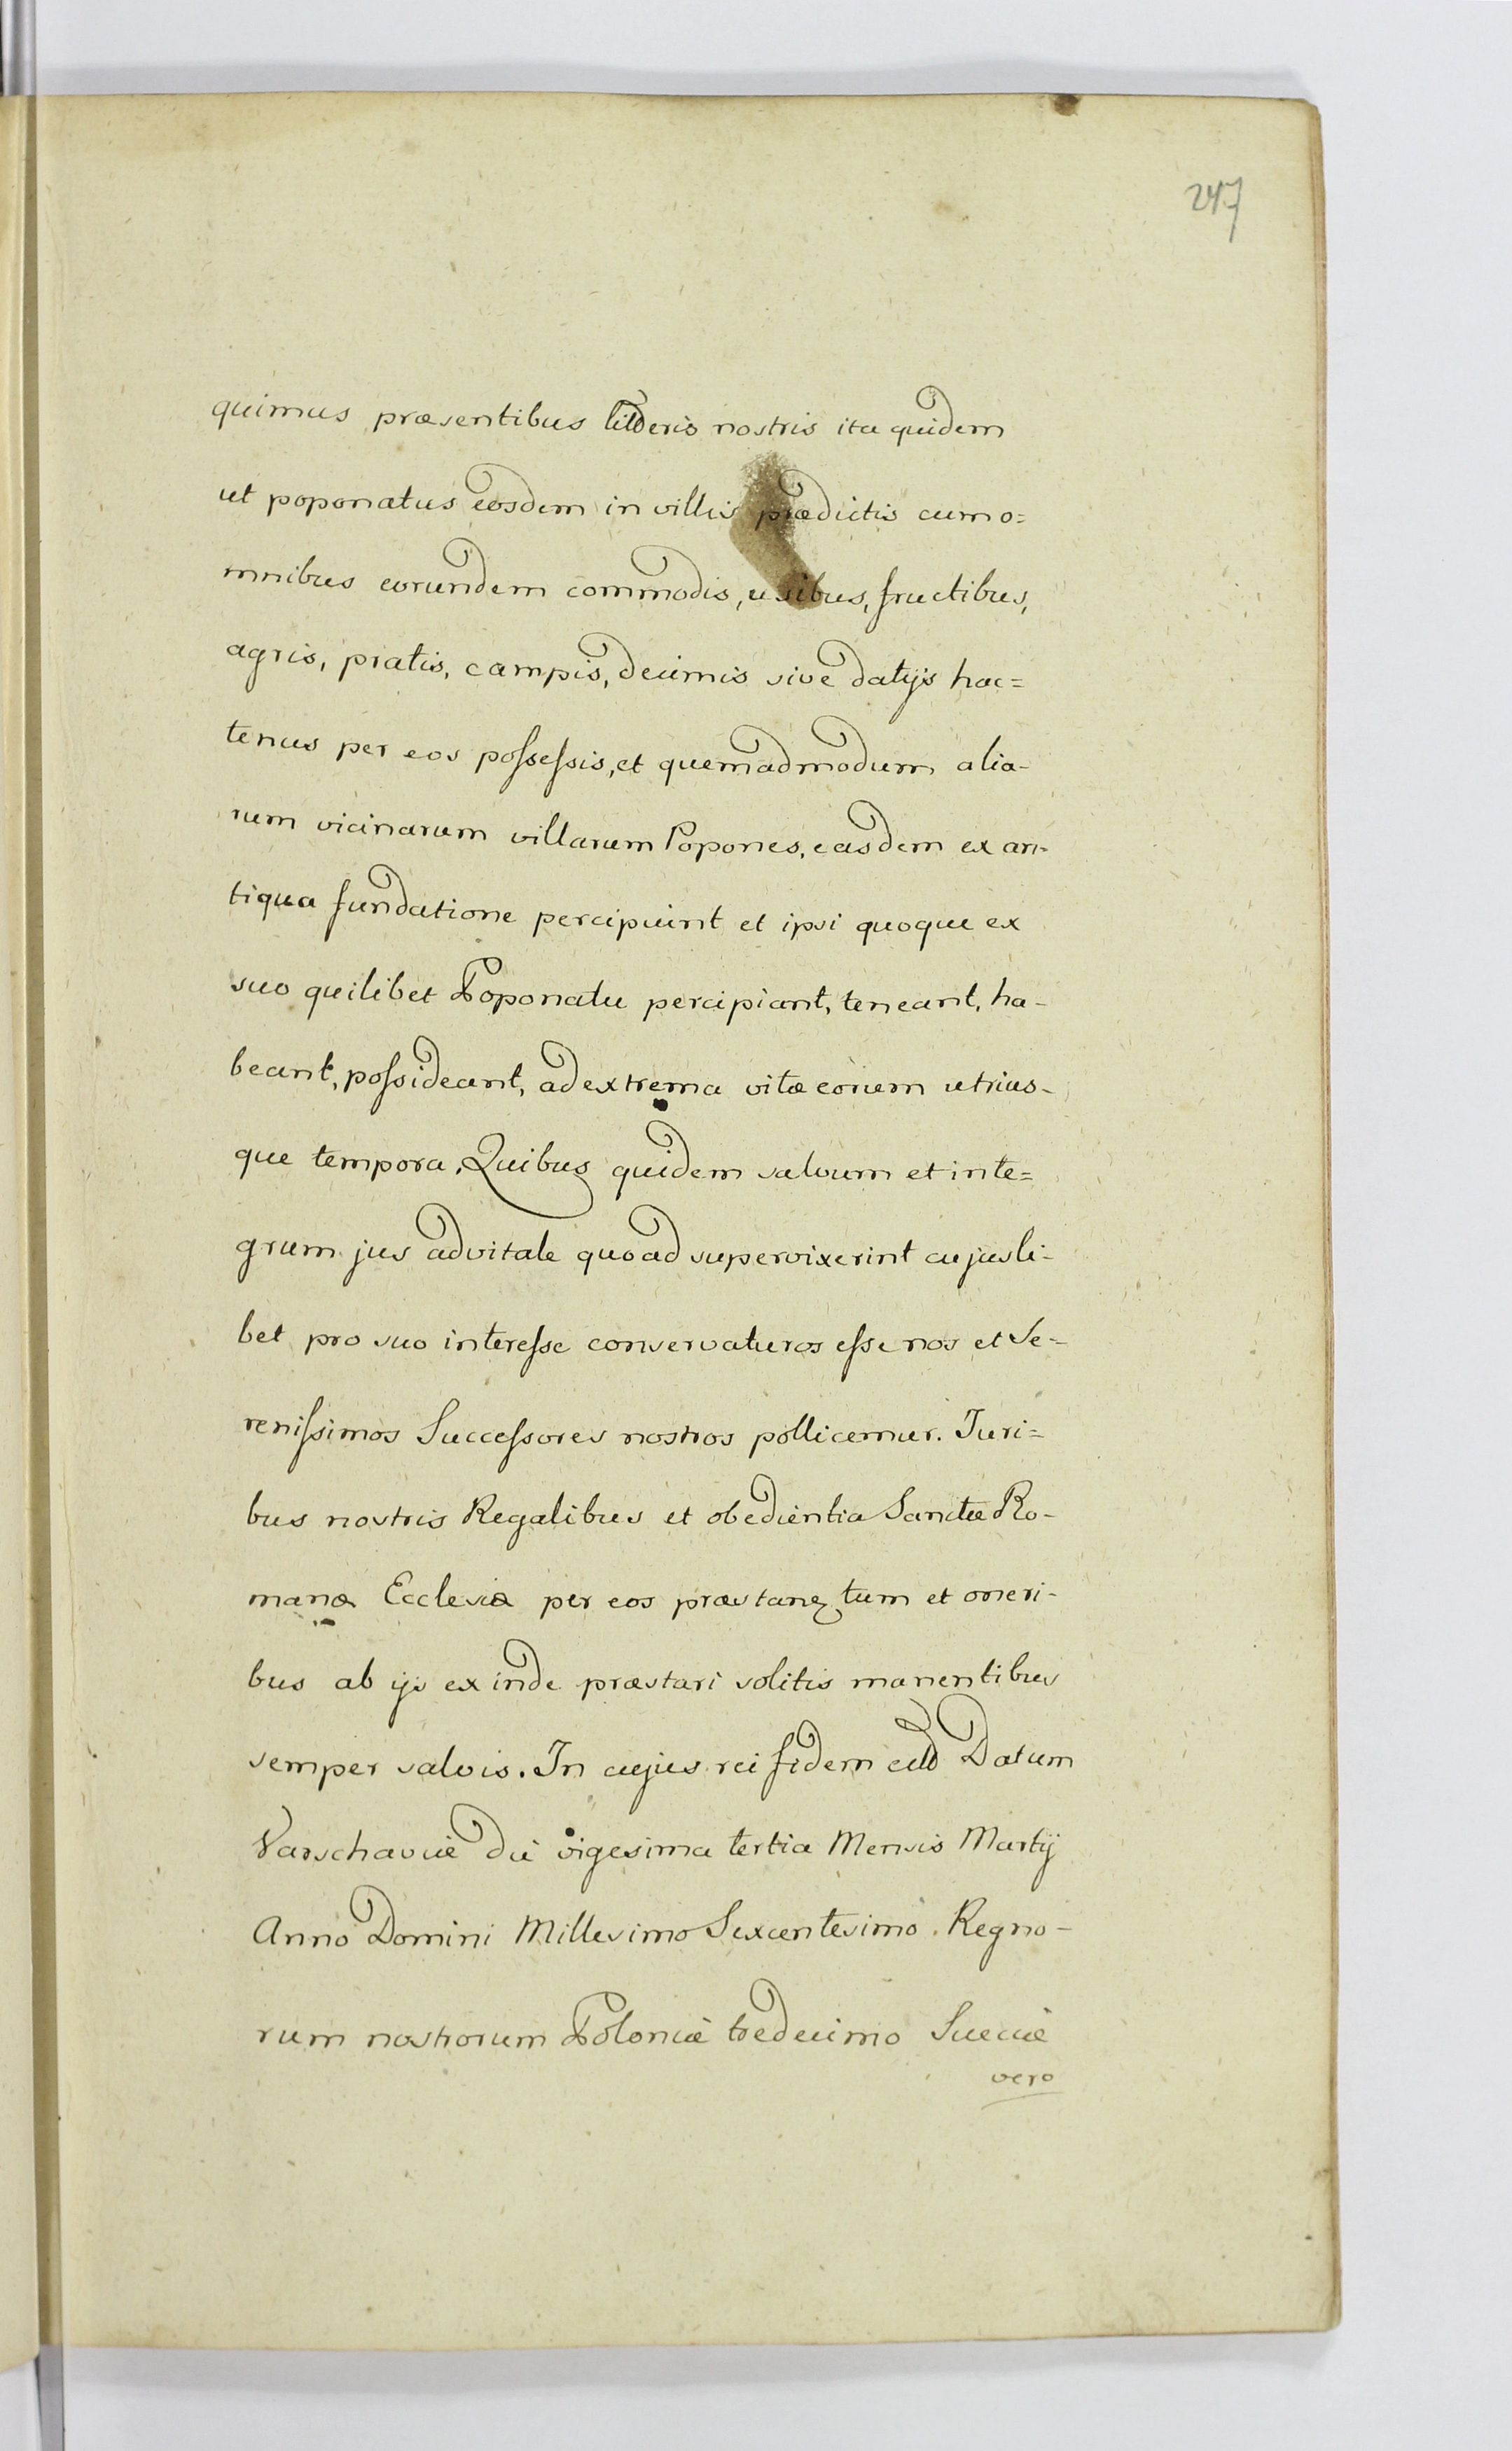 247
quimus præsentibus litteris nostris ita quidem
ut poponatus eosdem in villis prædictis cum o=
mnibus eorundem commodis, usibus, fructibus,
agris, pratis, campis, decimis sive datijs hac=
tenus per eos possessis, et quemadmodum alia-
rum vicinarum villarum Popones, easdem ex an-
tiqua fundatione percipiunt et ipsi quoque ex
suo quilibet Poponatu percipiant, teneant, ha-
beant, possideant, ad extrema vitæ eorum utrius-
que tempora. Quibus quidem salvum et inte=
grum jus advitale quoad supervixerint cujusli-
bet pro suo interesse conservaturos esse nos et Se-
renissimos Successores nostros pollicemur. Juri=
bus nostris Regalibus et obedientia Sanctæ Ro-
manæ Ecclesiæ per eos præstan tum et oneri-
bus ab ijs exinde præstari solitis manentibus
semper salvis. In cujus rei fidem Datum
Varschaviæ die vigesima tertia Mensis Martij
Anno Domini Millesimo Sexcentesimo. Regno-
rum nostrorum Poloniæ tredecimo Sueciæ
vero